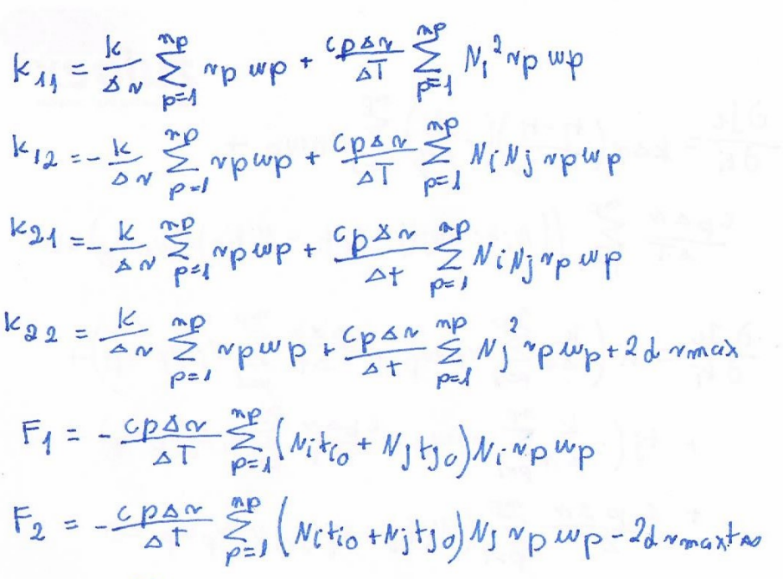 k₁₁ = k/Δr ∑_{p=1}^{np} rp wp + cpΔr/ΔT ∑_{p=1}^{np} Ni² rp wp
k₁₂ = - k/Δr ∑_{p=1}^{np} rp wp + cpΔr/ΔT ∑_{p=1}^{np} Ni Nj rp wp
k₂₁ = - k/Δr ∑_{p=1}^{np} rp wp + cpΔr/Δt ∑_{p=1}^{np} Ni Nj rp wp
k₂₂ = k/Δr ∑_{p=1}^{np} rp wp + cpΔr/Δt ∑_{p=1}^{np} Nj² rp wp + 2d rmax
F₁ = - cpΔr/ΔT ∑_{p=1}^{np} (Ni ti₀ + Nj tj₀) Ni rp wp
F₂ = - cpΔr/ΔT ∑_{p=1}^{np} (Ni ti₀ + Nj tj₀) Nj rp wp - 2d rmax t∞